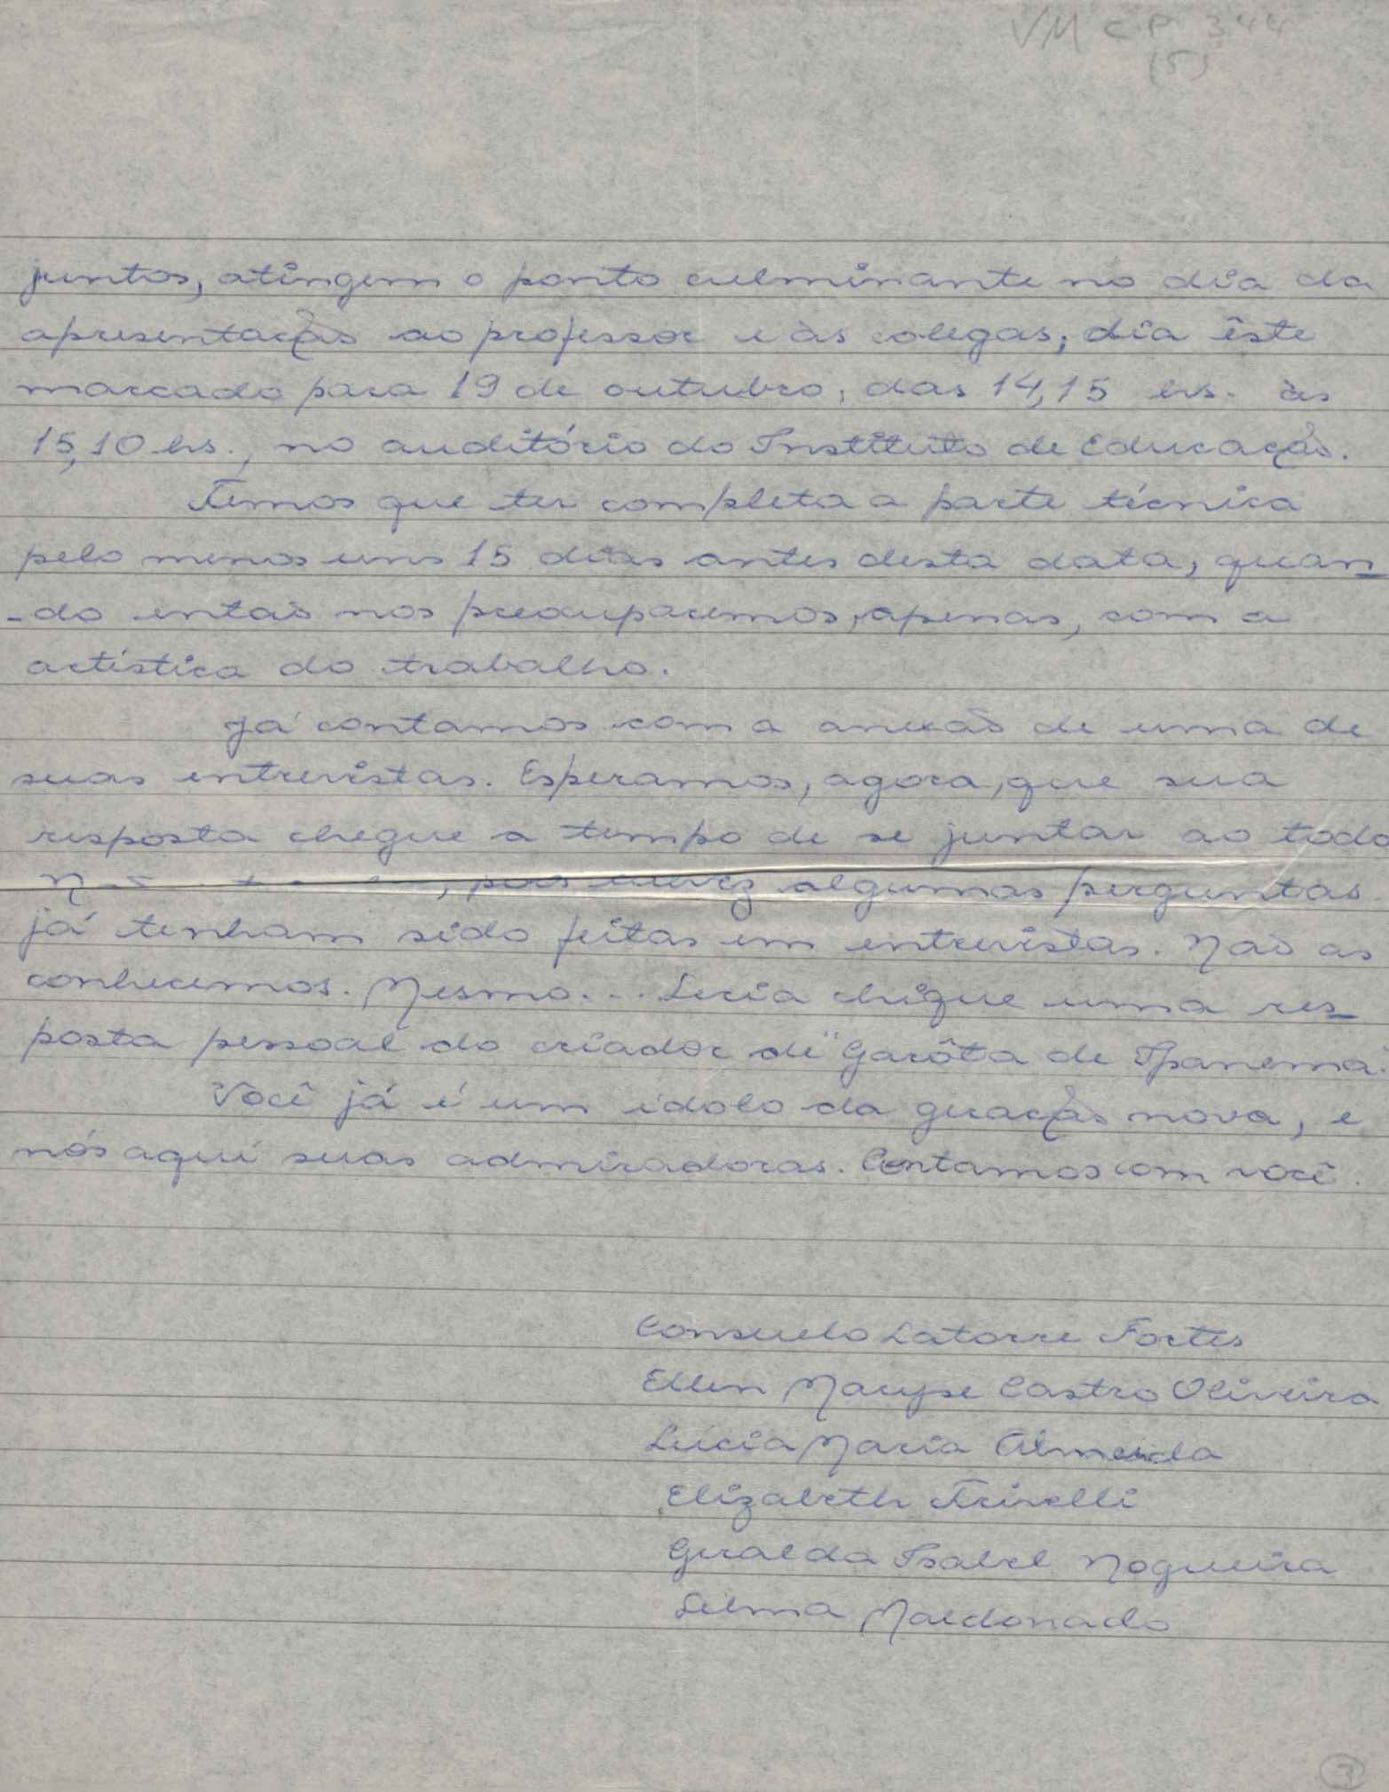 VM CP 344
(5)
juntos, atingem o ponto culminante no dia da
apresentação ao professor e às colegas, dia êste
marcado para 19 de outubro, das 14,15 hs. às
15,10 hs., no auditório do Instituto de Educação.
Temos que ter completa a parte técnica
pelo menos uns 15 dias antes desta data, quan-
-do então nos preocuparemos, apenas, com a
artística do trabalho.
Já contamos com a anexão de uma de
suas entrevistas. Esperamos, agora, que sua
resposta chegue a tempo de se juntar ao todo
, pois talvez algumas perguntas
já tenham sido feitas em entrevistas. Não as
conhecemos. Mesmo... Seria chique uma res-
posta pessoal do criador de "Garôta de Ipanema".
Você já é um ídolo da geração nova, e
nós aqui suas admiradoras. Contamos com você.
Consuelo Latorre Fortes
Ellen Maryse Castro Oliveira
Lúcia Maria Almeida
Elizabeth Trivelli
Geralda Isabel Nogueira
Selma Maldonado
3